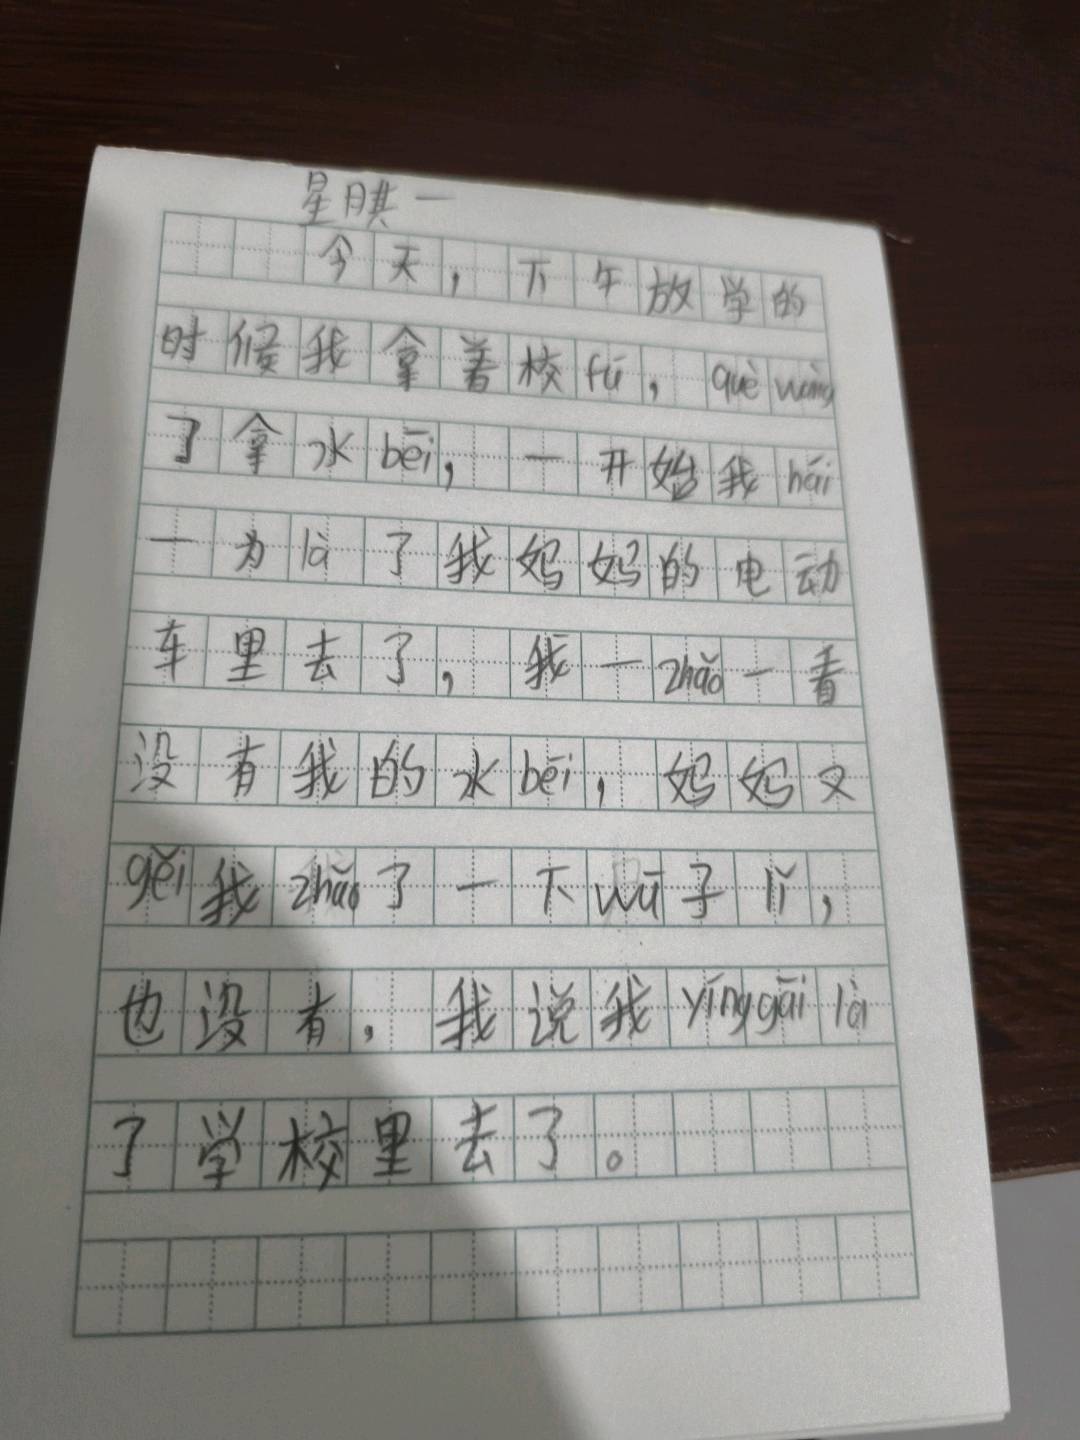 星期一
今天，下午放学的
时候我拿着校fú，què wàng
了拿水bēi，一开始我hái
一为là了我妈妈的电动
车里去了，我一zhǎo一看
没有我的水bēi，妈妈又
gěi我zhǎo了一下wū子lǐ，
也没有，我说我yīnggāi là
了学校里去了。